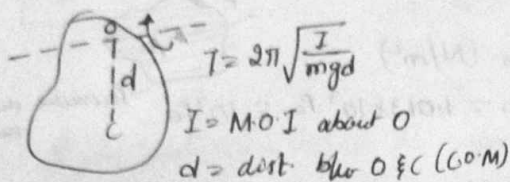 O
d
C
T = 2π√(I/mgd)
I = M.O.I about O
d = dist. b/w O & C (C.O.M)